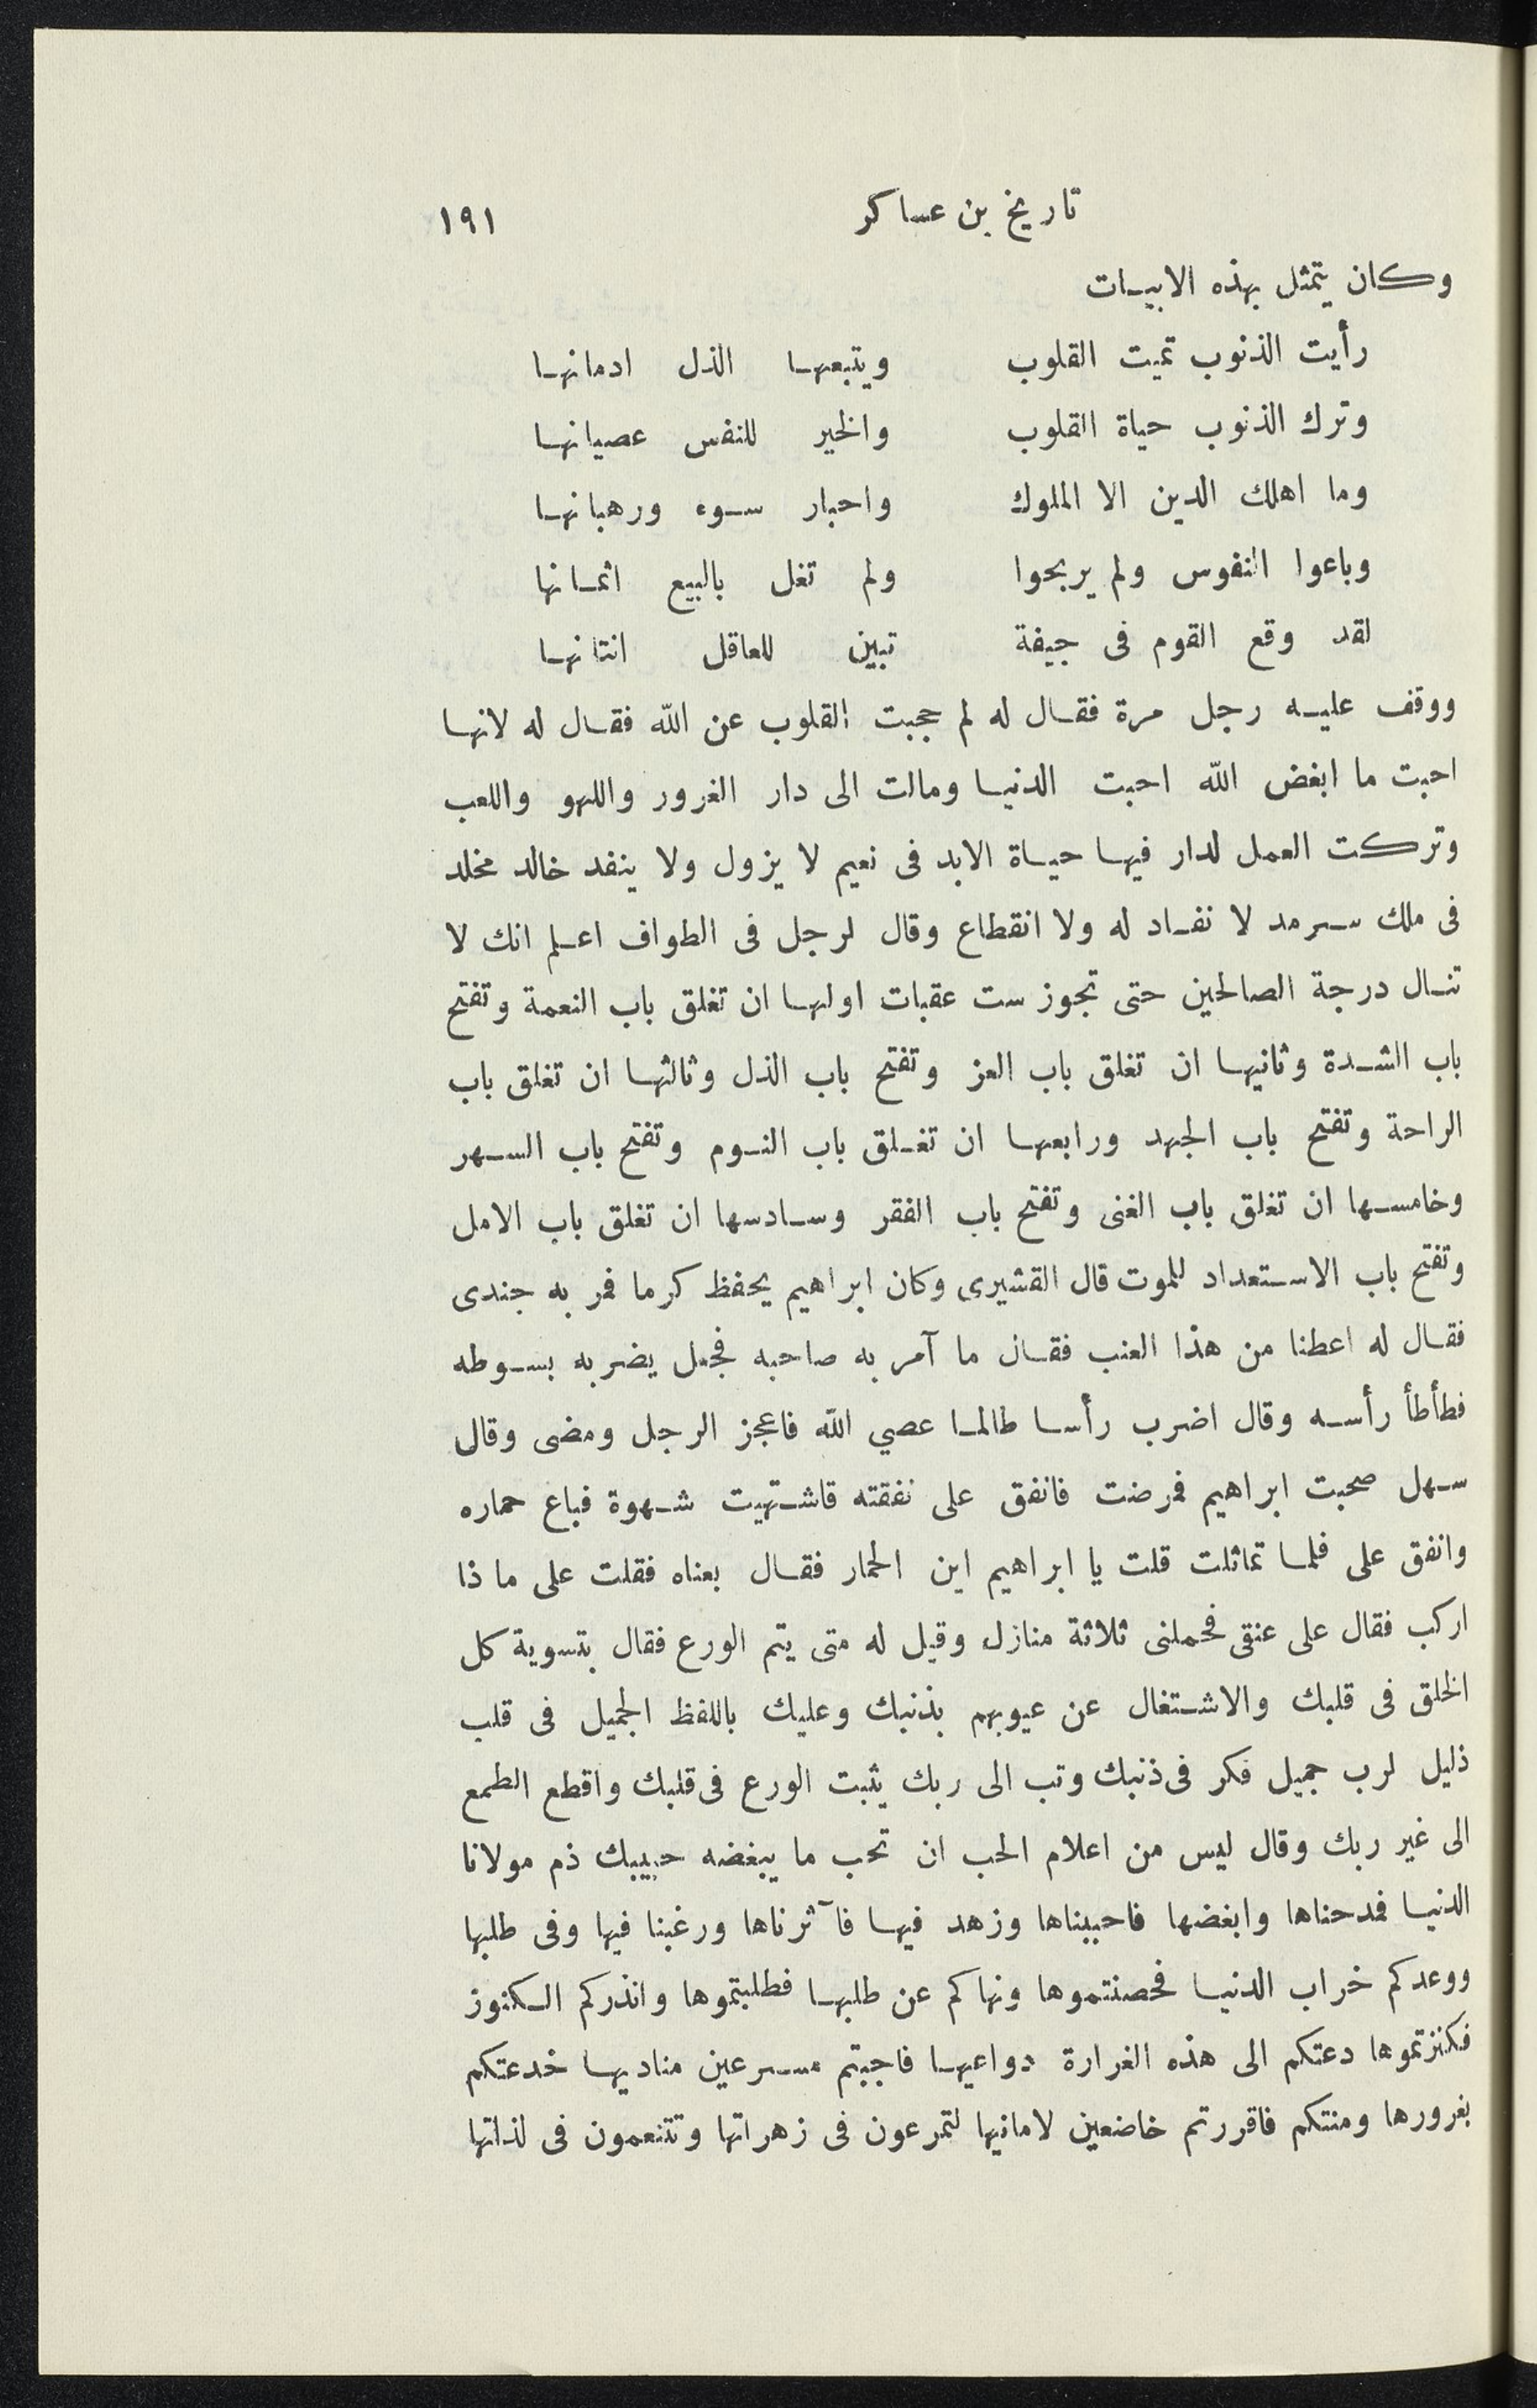 تاريخ بن عساكر ١٩١
وكان يتمثل بهذه الابيات
رأيت الذنوب تميت القلوب ويتبعها الذل ادمانها
وترك الذنوب حياة القلوب والخير للنفس عصيانها
وما اهلك الدين الا الملوك واحبار سوء ورهبانها
وباعوا النفوس ولم يربحوا ولم تغل بالبيع اثمانها
لقد وقع القوم فى جيفة تبين للعاقل انتانها
ووقف عليه رجل مرة فقال له لم حجبت القلوب عن الله فقال له لانها
احبت ما ابغض الله احبت الدنيا ومالت الى دار الغرور واللهو واللعب
وتركت العمل لدار فيها حياة الابد فى نعيم لا يزول ولا ينفد خالد مخلد
فى ملك سرمد لا نفاد له ولا انقطاع وقال لرجل فى الطواف اعلم انك لا
تنال درجة الصالحين حتى تجوز ست عقبات اولها ان تغلق باب النعمة وتفتح
باب الشدة وثانيها ان تغلق باب العز وتفتح باب الذل وثالثها ان تغلق باب
الراحة وتفتح باب الجهد ورابعها ان تغلق باب النوم وتفتح باب السهر
وخامسها ان تغلق باب الغنى وتفتح باب الفقر وسادسها ان تغلق باب الامل
وتفتح باب الاستعداد للموت قال القشيرى وكان ابراهيم يحفظ كرما فمر به جندى
فقال له اعطنا من هذا العنب فقال ما آمر به صاحبه فجعل يضربه بسوطه
فطأطأ رأسه وقال اضرب رأسا طالما عصي الله فاعجز الرجل ومضى وقال
سهل صحبت ابراهيم فمرضت فانفق على نفقته فاشتهيت شهوة فباع حماره
وانفق على فلما تماثلت قلت يا ابراهيم اين الحمار فقال بعناه فقلت على ما ذا
اركب فقال على عنقى فحملنى ثلاثة منازل وقيل له متى يتم الورع فقال بتسوية كل
الخلق فى قلبك والاشتغال عن عيوبهم بذنبك وعليك باللفظ الجميل فى قلب
ذليل لرب جميل فكر فى ذنبك وتب الى ربك يثبت الورع فى قلبك واقطع الطمع
الى غير ربك وقال ليس من اعلام الحب ان تحب ما يبغضه حبيبك ذم مولانا
الدنيا فمدحناها وابغضها فاحببناها وزهد فيها فآثرناها ورغبنا فيها وفى طلبها
ووعدكم خراب الدنيا فحصنتموها ونهاكم عن طلبها فطلبتموها وانذركم الكنوز
فكنزتموها دعتكم الى هذه الغرارة دواعيها فاجبتم مسرعين مناديها خدعتكم
بغرورها ومنتكم فاقررتم خاضعين لامانيها لتمرعون فى زهراتها وتتنعمون فى لذاتها